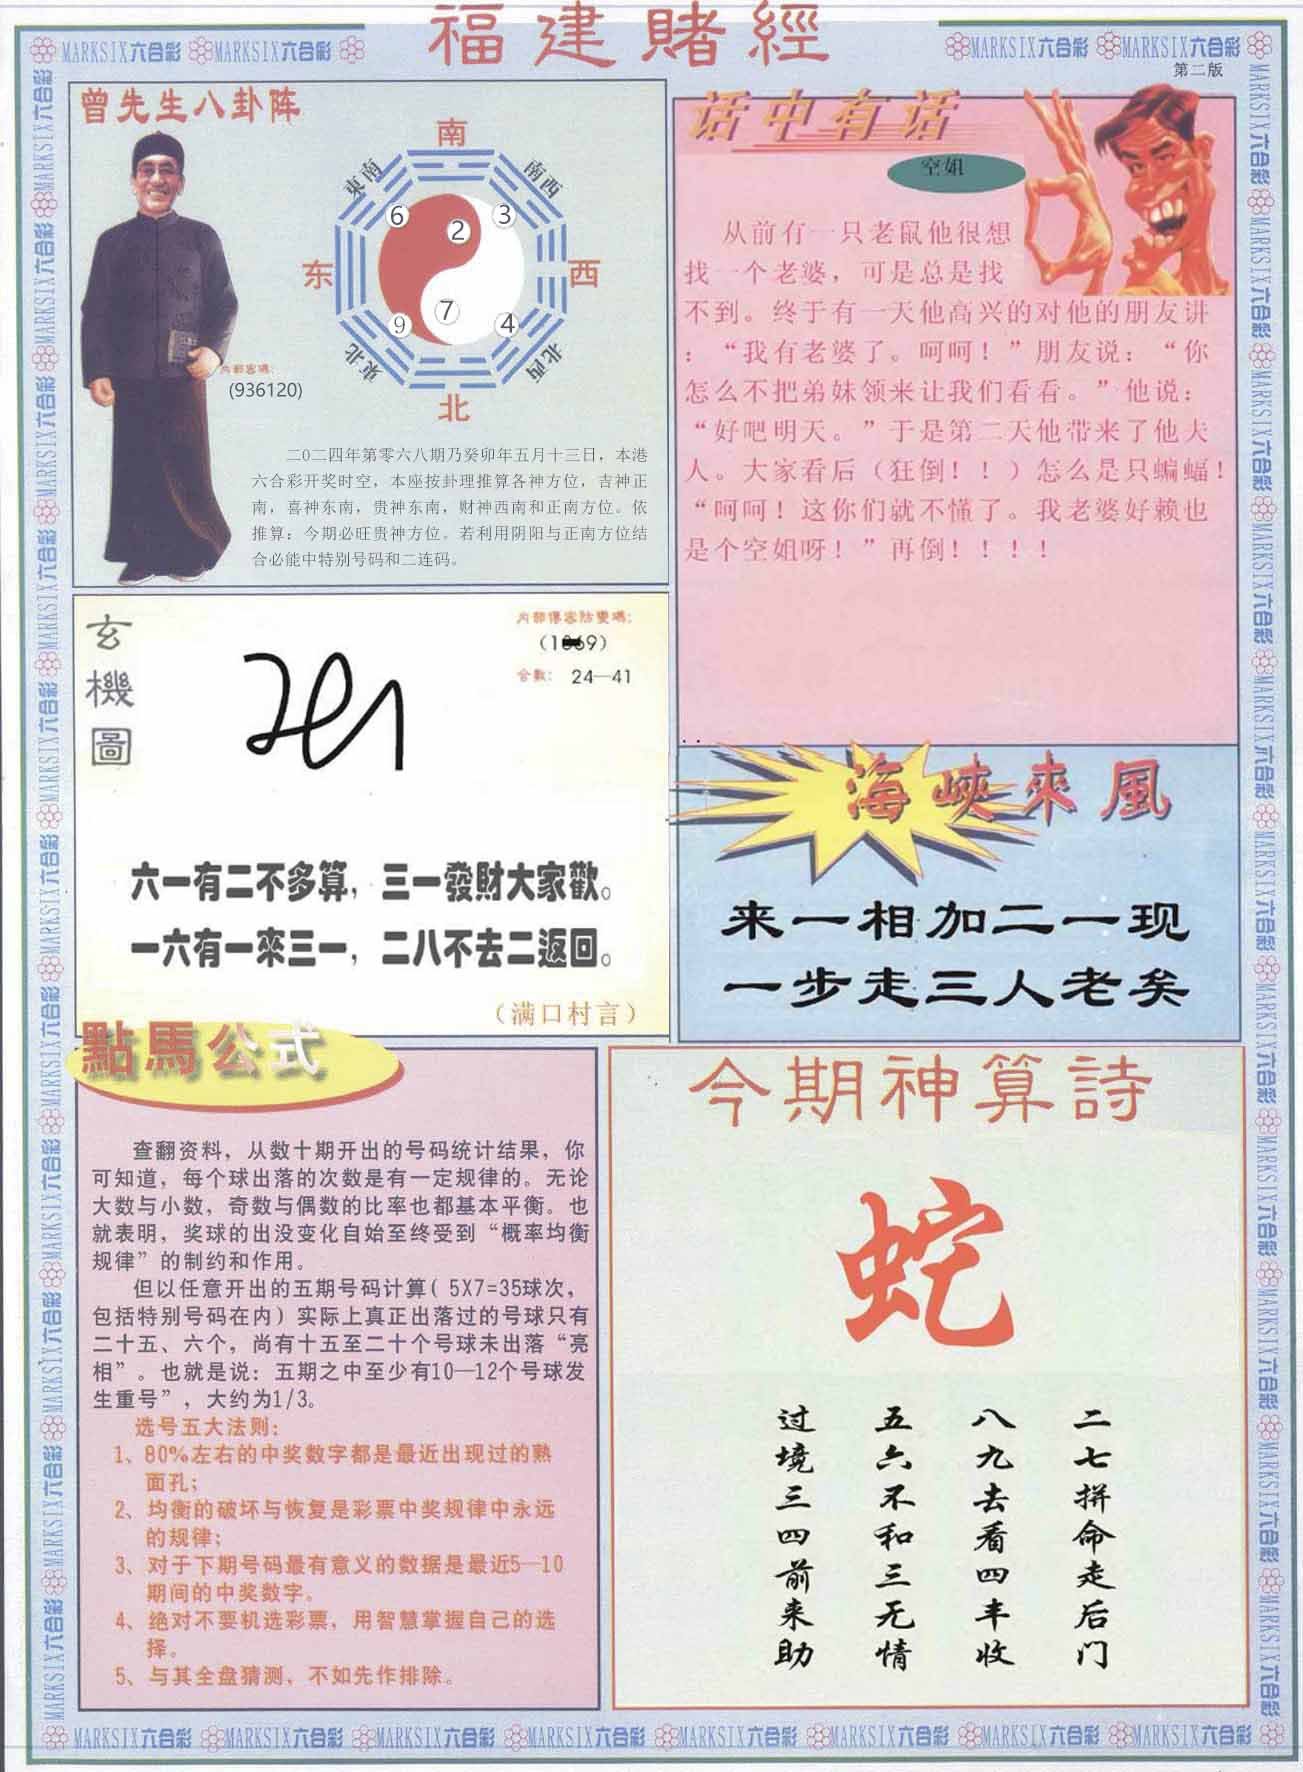 福建賭經
MARKSIX六合彩 MARKSIX六合彩
MARKSIX六合彩 MARKSIX六合彩
第二版
曾先生八卦阵
南
東南
南西
6
2
3
东
西
9
7
4
東北
北西
北
内部密碼:
(936120)
二0二四年第零六八期乃癸卯年五月十三日，本港
六合彩开奖时空，本座按卦理推算各神方位，吉神正
南，喜神东南，贵神东南，财神西南和正南方位。依
推算：今期必旺贵神方位。若利用阴阳与正南方位结
合必能中特别号码和二连码。
话中有话
空姐
从前有一只老鼠他很想
找一个老婆，可是总是找
不到。终于有一天他高兴的对他的朋友讲
：“我有老婆了。呵呵！”朋友说：“你
怎么不把弟妹领来让我们看看。”他说：
“好吧明天。”于是第二天他带来了他夫
人。大家看后（狂倒！！）怎么是只蝙蝠！
“呵呵！这你们就不懂了。我老婆好赖也
是个空姐呀！”再倒！！！！
玄機圖
内部傳密防變碼:
合數: 24—41
六一有二不多算，三一發財大家歡。
一六有一來三一，二八不去二返回。
（满口村言）
海峽來風
来一相加二一现
一步走三人老矣
點馬公式
查翻资料，从数十期开出的号码统计结果，你
可知道，每个球出落的次数是有一定规律的。无论
大数与小数，奇数与偶数的比率也都基本平衡。也
就表明，奖球的出没变化自始至终受到“概率均衡
规律”的制约和作用。
但以任意开出的五期号码计算( 5X7=35球次，
包括特别号码在内) 实际上真正出落过的号球只有
二十五、六个，尚有十五至二十个号球未出落“亮
相”。也就是说：五期之中至少有10—12个号球发
生重号”，大约为1/3。
选号五大法则：
1、80%左右的中奖数字都是最近出现过的熟
面孔；
2、均衡的破坏与恢复是彩票中奖规律中永远
的规律；
3、对于下期号码最有意义的数据是最近5—10
期间的中奖数字。
4、绝对不要机选彩票，用智慧掌握自己的选
择。
5、与其全盘猜测，不如先作排除。
今期神算詩
蛇
二七拼命走后门
八九去看四丰收
五六不和三无情
过境三四前来助
MARKSIX六合彩 MARKSIX六合彩 MARKSIX六合彩 MARKSIX六合彩 MARKSIX六合彩 MARKSIX六合彩 MARKSIX六合彩 MARKSIX六合彩